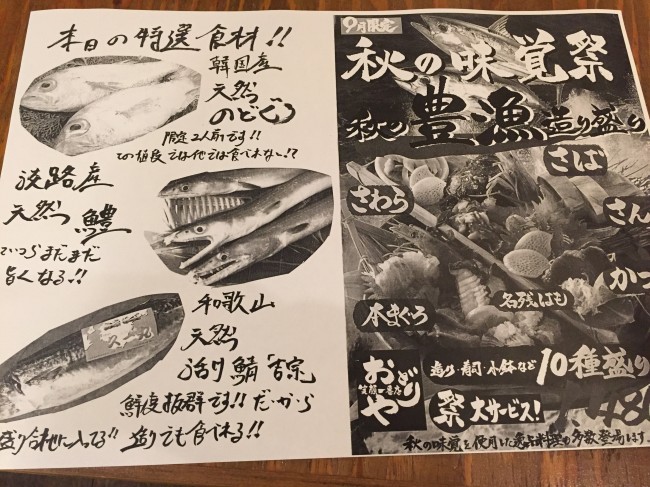 本日の特選食材!!
韓国産
天然
のどぐろ
限定2人前です!!
この値段では他では食べれなーい!?
淡路産
天然 鱧
こいつらまだまだ
旨くなる!!
和歌山
天然
活〆鯖「吉宗」
鮮度抜群です!!だ・か・ら
盛り合わせに入ってる!! 造りでも食べれる!!
9月限定
秋の味覚祭
秋の豊漁造り盛り
さば
さわら
さん
かつ
名残はも
本まぐろ
おどりや
造り・寿司・小鉢など10種盛り
祭大サービス!
秋の味覚を使用した逸品料理の多数登場します